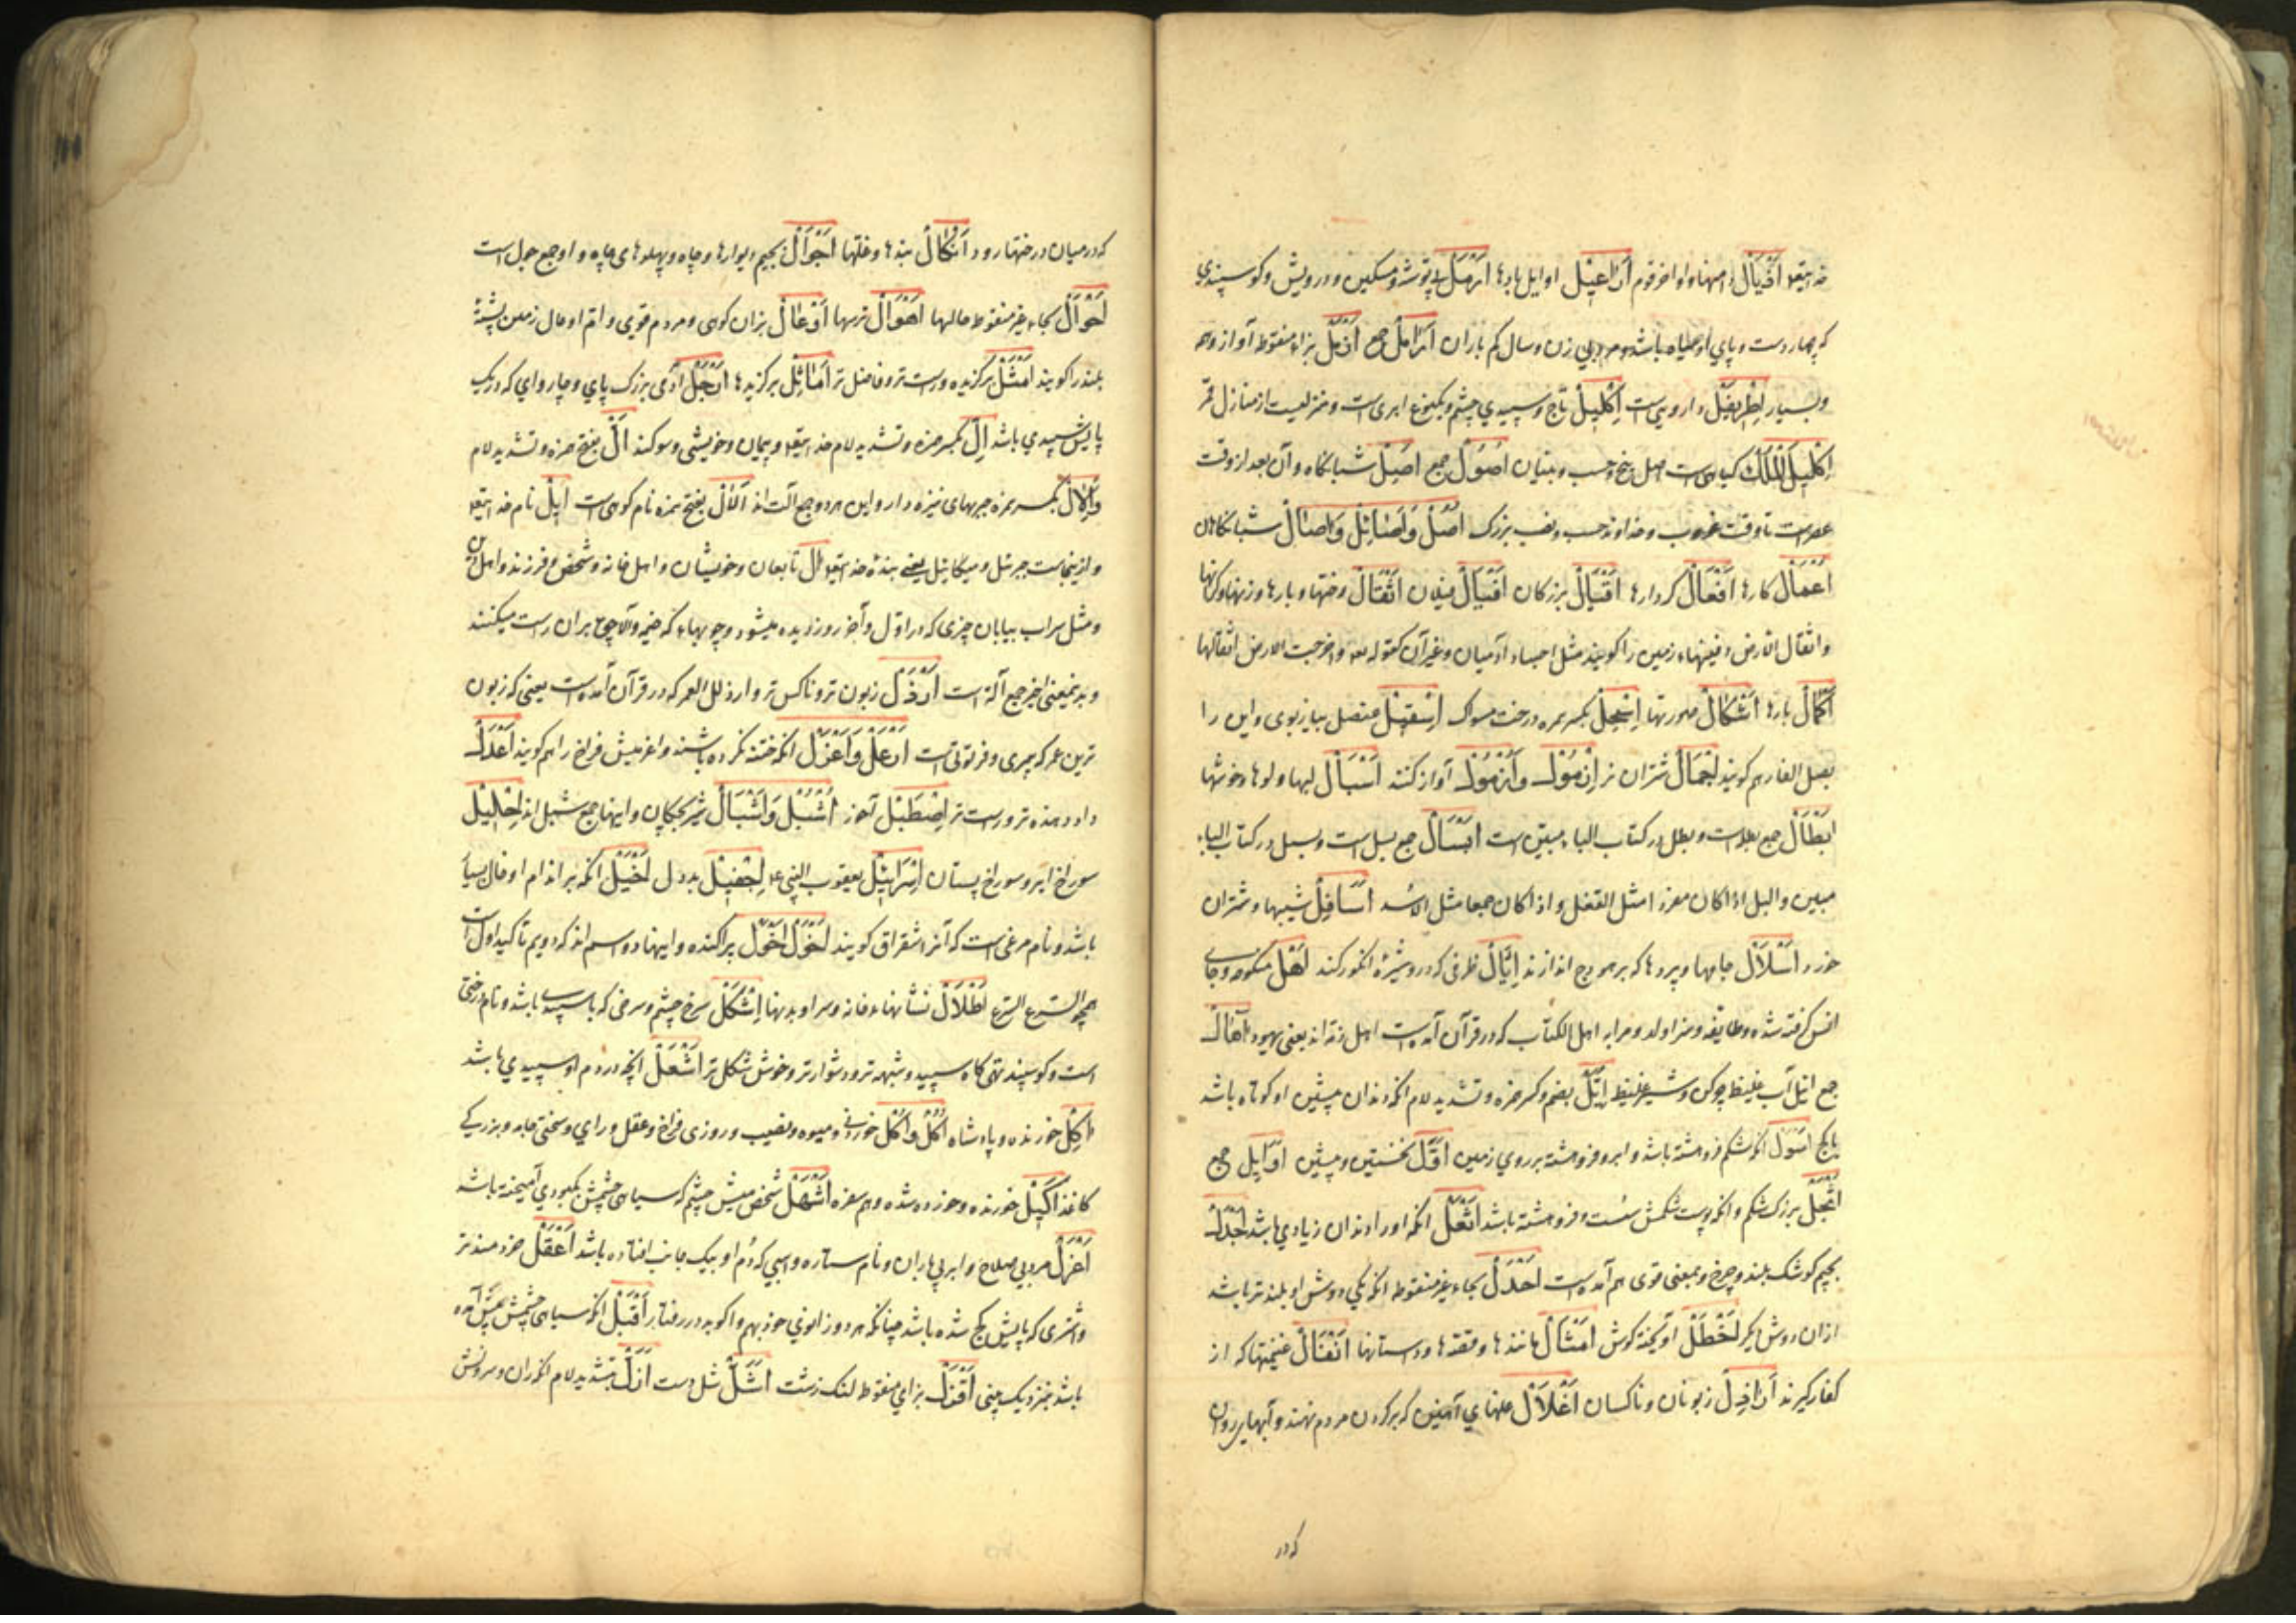 خدایتعالی اذیال دامنها و اواخر قوم اراعیل اوایل بادها ارمل بی توشه و مسکین و درویش و کوسپندی
که چهار دست و پای او سیاه باشد و مرد بی زن و سال کم باران ارامل جمع ازمل بزاء منقوطه آواز و همه
و بسیار اطریفل داروییست اکلیل تاج و سپیدی چشم و یکنوع ابری است و منزلیست از منازل قمر
اکلیل الملک کیاهی است اصل بیخ و حسب و بنیان اصول جمع اصیل شبانکاه و آن بعد از وقت
عصر است تا وقت غروب و خداوند حسب و نسب بزرک اصل و اصائل و آصال شبانکاهان
اعمال کارها افعال کردارها اقیال بزرکان افیال پیلان اثقال رختها و بارها و زنها و
و اثقال الارض دفینهاء زمین را کویند مثل اجساد آدمیان و غیر آن کقوله تعالی و اخرجت الارض اثقالها
احمال بارها اشکال صورتها اسحل بکسر همزه درخت مسواک اسقیل عنصل پیاز بوی و این را
بصل الفار هم کویند اجمال شتران نر ازمول و ازمول آواز کننده اسبال لبها و دلوها و خوشها
ابطال جمع بطلست و بطل در کتاب الباء مبین است ابسال جمع بسل است و بسل در کتاب الباء
مبین و البسل اذا کان مفردا مثل القفل و اذا کان جمعا مثل الاسد اسافل شیبها و شتران
خورد اسلال جامها و پردها که بر هودج اندازند ایال ظرفی که در و شیره انکور کنند اهل منکوحه و جای
انس کرفته شده و طایفه و سزاوار و مراد اهل الکتاب که در قرآن آمده است اهل ذمه اند یعنی یهود
جمع ایل آب غلیظ چرکن و شیر غلیظ ایل بضم و کسر همزه و تشدید لام انکه دندان پیشین او کوتاه باشد
یا کج اسول انکه شکم فروهشته باشد و ابر و فروهشته بر روی زمین اول نخستین و پیشین اوایل جمع
اثجل بزرک شکم و انکه پوست شکمش سست و فروهشته باشد اثعل انکه اورا دندان زیادی باشد اجدل
بجیم کوشک بلند و چرخ و بمعنی قوی هم آمده است احدل بحاء غیر منقوطه انکه یکی دوش او بلندتر باشد
از ان دوش دیکر اخطل آویخته کوش امثال مانندها و قصه ها و داستانها انفال غنیمتها که از
کفار کیرند اراذل زبونان و ناکسان اغلال غلهای آهنین که بر کردن مردم نهند و آبهای روان
که در
که در میان درختها رود انکال بندها و غلها اجوال بجیم دیوارها و چاه و پهلوهای چاه و او جمع جول است
احوال بحاء غیر منقوطه حالها اهوال ترسها اوعال بزان کوهی و مردم قوی و ام اوعال زمین پشته
بلند را کویند امثل برکزیده و راست تر و فاضل تر اماثل برکزیدها ارجل آدمی بزرک پای و چاروای که در یک
پایش سپیدی باشد ال بکسر همزه و تشدید لام خدایتعالی و پیمان و خویشی و سوکند ال بفتح همزه و تشدید لام
و الال بکسر همزه حربهای نیزه دار و این هر دو جمع الت اند الال بفتح همزه نام کوهی است ایل نام خدایتعالی
و ازینجاست جبرئیل و میکائیل یعنی بنده خدایتعالی ال تابعان و خویشان و اهل خانه و شخص و فرزند و اهل دین
و مثل سراب بیابان چیزی که در اول و آخر روز دیده میشود و چوبهاء که خیمه و آلاچوق بران راست میکنند
و بدینمعنی اخیر جمع آلة است ارذل زبون تر و ناکس تر و ارذل العمر که در قرآن آمده است یعنی که زبون
ترین عمر که پیری و فرتوتی است ارغل و اغرل انکه ختنه نکرده باشند و اغر عیش فراخ را هم کویند اعدل
داد دهنده تر و راست تر اصطبل آخور اشبل و اشبال شیر بچکان و اینها جمع شبل اند احلیل
سوراخ ایر و سوراخ پستان اسرائیل یعقوب النبی ع اجفیل بددل اخیل انکه بر اندام او خال بسیار
باشد و نام مرغی است که آنرا شقراق کویند اخول اخول پراکنده و اینها دو اسم اند که دویم تاکید اول است
اطلال نشانهاء خانه و سرا و بدنها اشکل سرخ چشم و سرخی که با سپید باشد و نام درختی
است و کوسپند تهی کاه سپید و شبهه تر و دشوارتر و خوش شکل تر اشعل انچه در دم او سپیدی باشد
اکل خورنده و پادشاه اکل و اکل خوردنی و میوه و نصیب و روزی فراخ و عقل و رای و سختی جامه و بزرکی
کاغذ اکیل خورنده و خورده شده و هم سفره اشهل شخص میش چشم که سیاهی چشمش بکبودی آمیخته باشد
اعزل مرد بی صلاح و ابر بی باران و نام ستاره و اسپی که دم او بیک جانب افتاده باشد اعقل خردمندتر
و اشتری که پایش کج شده باشد چنانکه هر دو زانوی خود بهم واکوبد در رفتار اقبل انکه سیاهی چشمش پیش آمده
باشد بنزدیک بینی اقزل بزای منقوطه لنک زشت اشل شل دست ازل بتشدید لام انکه ران و سرونش